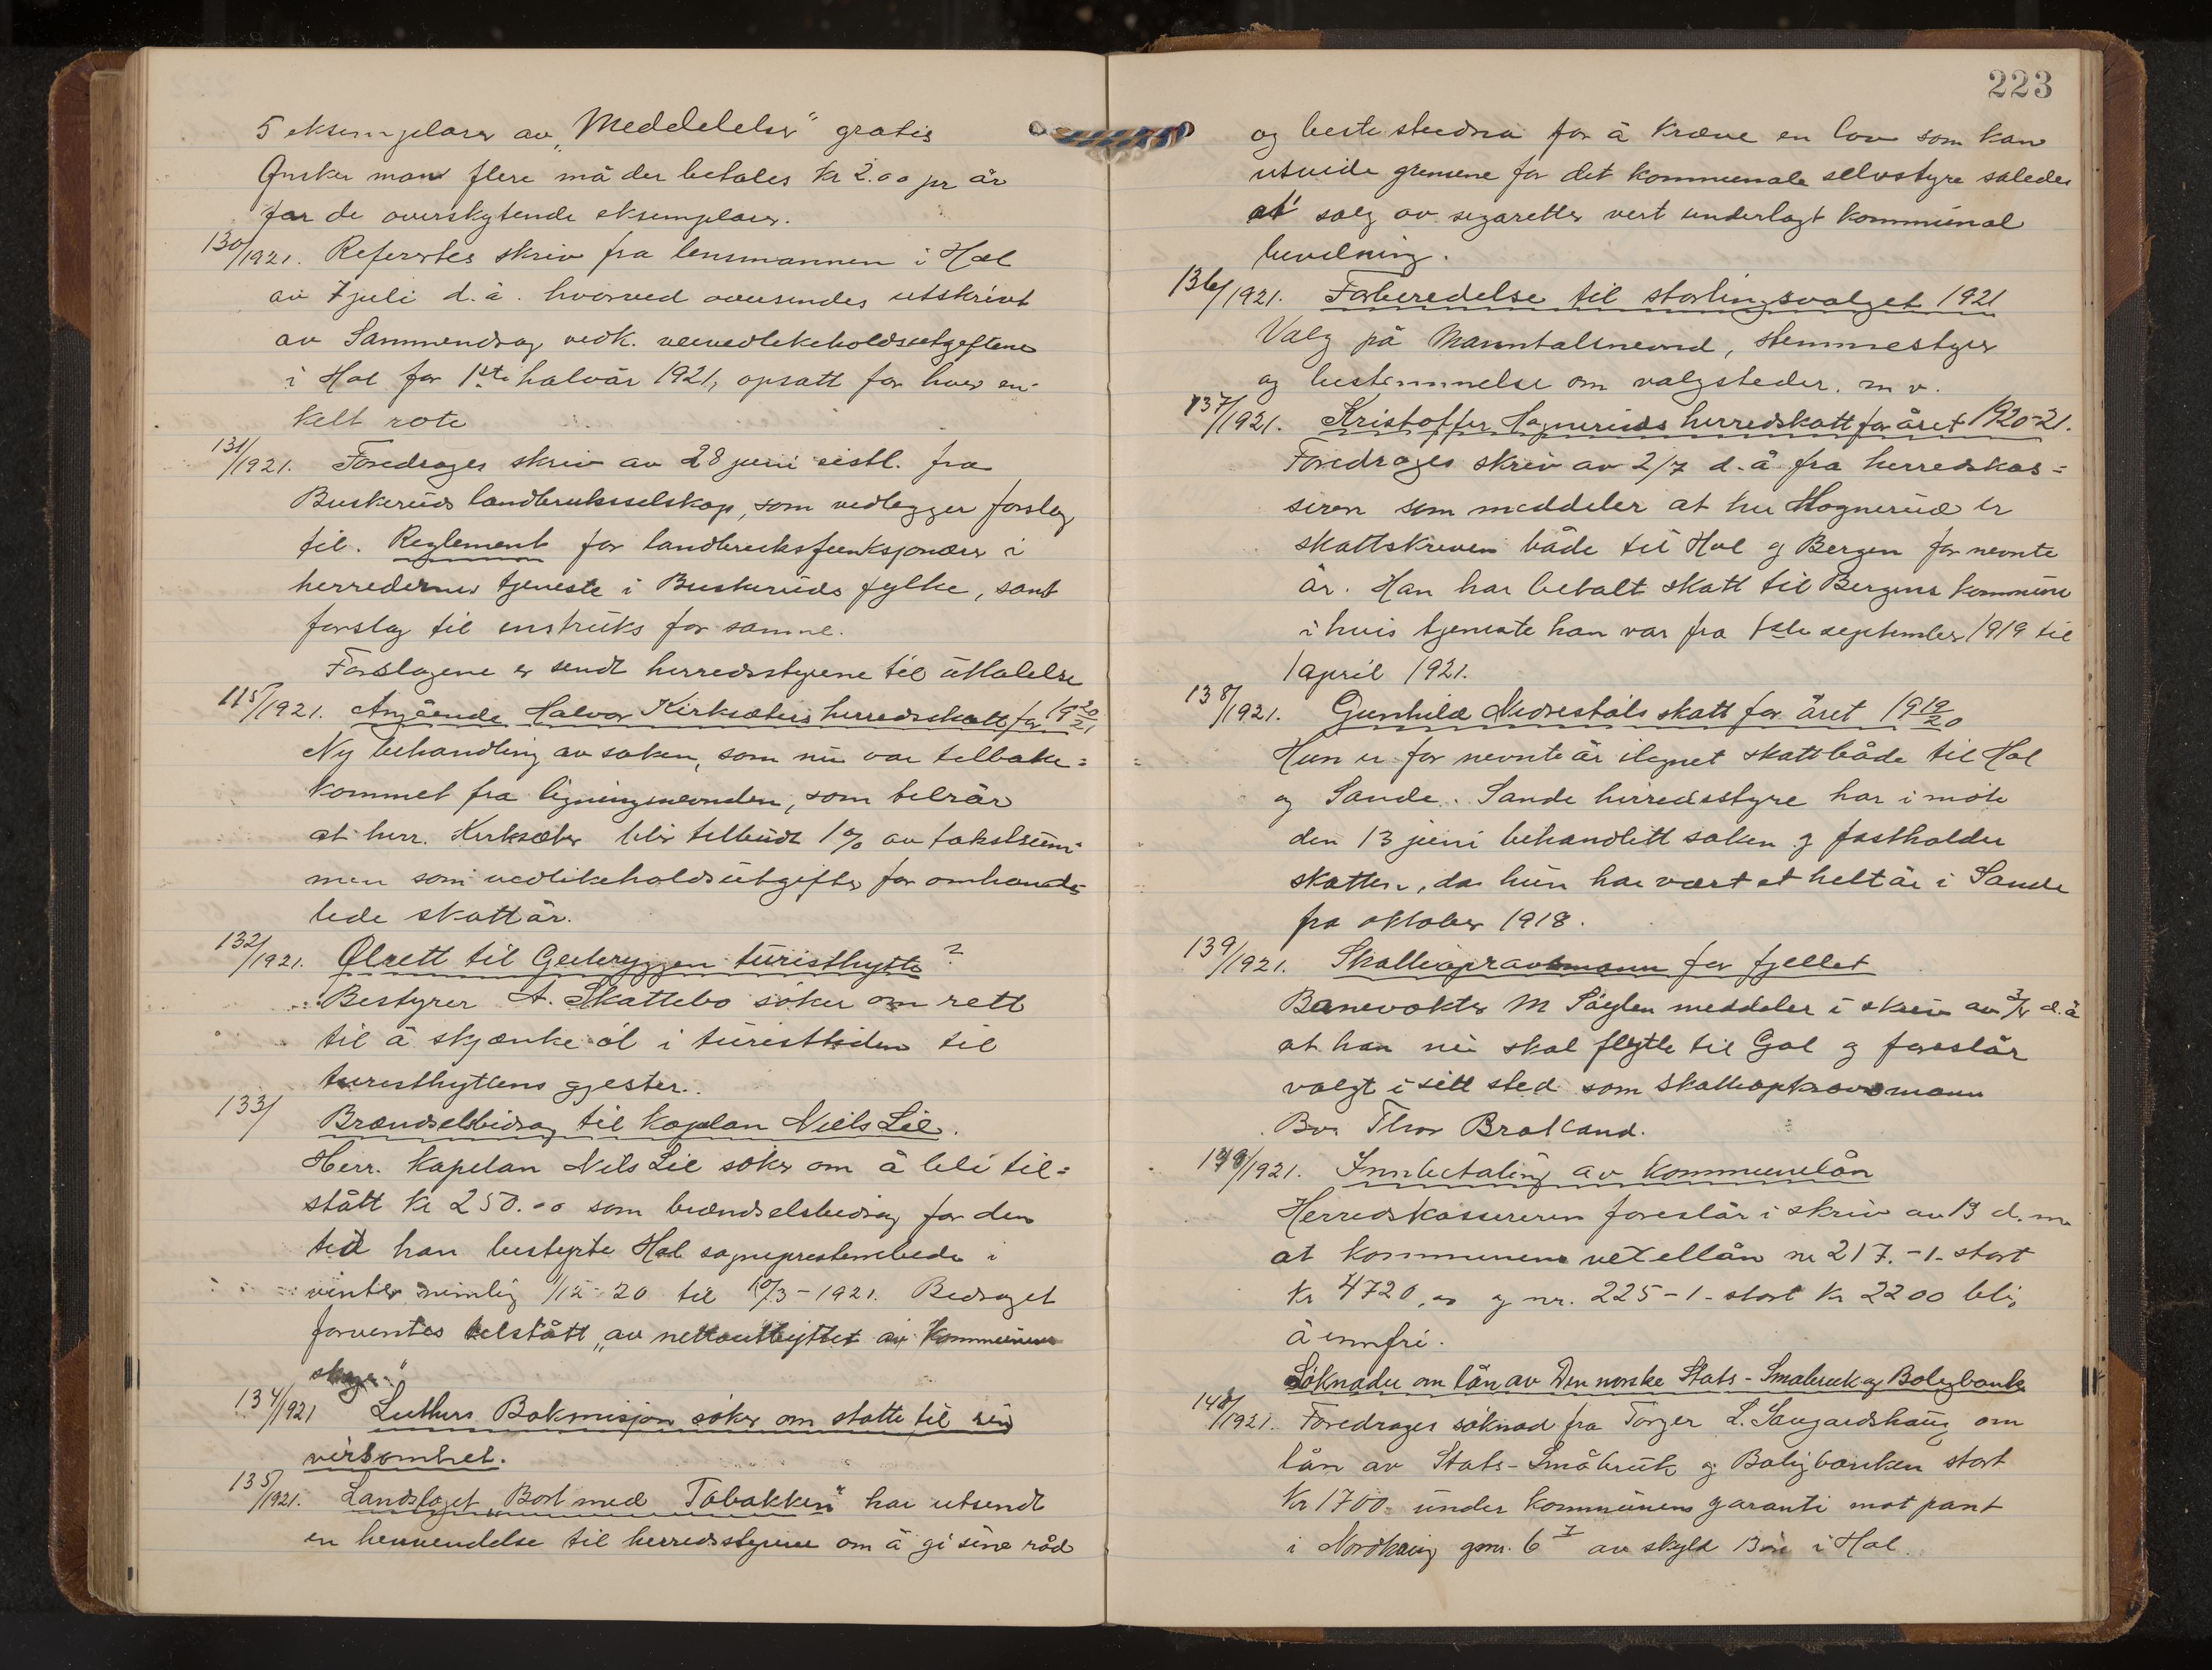 5 eksemplarer av „Meddelelser" gratis
Ønsker man flere må der betales Kr 2.00 pr år
for de overskytende eksemplarer.
130/1921. Refererstes skriv fra lensmannen i Hol
av 7 juli d.å. hvorved oversendes utskrivt
av Sammendrag vedk. veivedlikeholdsutgiftene
i Hol for 1ste halvår 1921, opsatt for hver en-
kelt rote
131/1921. Foredrages skriv av 28 juni sistl. fra
Buskeruds landbruksselskap, som vedlegger forslag
til. Reglement for landbruksfunksjonærer i
herredernes tjeneste i Buskeruds fylke, samt
forslag til instruks for samme.
Forslagene er sendt herredsstyrene til uttalelse
115/1921. Angående Halvor Kirksæters herredsskatt for 1920/21
Ny behandling av saken, som nu var tilbake=
kommet fra ligningsnevnden, som tilrår
at herr. Kirksæter blir tilbudt 1% av takstsum-
men som vedlikeholdsutgifter for omhand-
lede skattår.
132/1921. Ølrett til Geiteryggen turisthytte?
Bestyrer A. Skattebo søker om rett
til å skjænke øl i turisttiden til
turisthyttens gjester.
133/ Brændselsbidrag til kaplan Niels Lie.
Herr. kapelan Nils Lie søker om å bli til=
stått Kr 250.00 som brændselsbidrag for den
tid han bestyrte Hol sogneprestembede i
vinter nemlig 1/12-20 til 10/3-1921. Bidraget
forventes tilstått „av nettoutbyttet av kommunens
skoge."
134/1921 Luthers Bokmisjon søker om støtte til sin
virksomhet.
135/1921. Landslaget „Bort med Tobakken" har utsendt
en henvendelse til herredsstyrene om å gi sine råd
223
og beste stedna for å kræve en lov som kan
utvide grensene for det kommunale selvstyre således
at salg av sigaretter vert underlagt kommunal
bevilning.
136/1921. Forberedelse til stortingsvalget 1921
Valg på Manntalsnevnd, stemmestyrer
og bestemmelse om valgsteder. m v.
137/1921. Kristoffer Hagneruds herredskatt for året 1920-21.
Foredrages skriv av 2/7 d.å fra herredskas=
seren som meddeler at hr Hognerud er
skattskreven både til Hol og Bergen for nevnte
år. Han har betalt skatt til Bergens kommune
i hvis tjeneste han var fra 1ste september 1919 til
1 april 1921.
138/1921. Gunhild Nedrestøls skatt for året 1919/20
Hun er for nevnte år ilignet skatt både til Hol
og Sande. Sande herredsstyre har i møte
den 13 juni behandlett saken og fastholder
skatten, da hun har vært et helt år i Sande
fra oktober 1918.
139/1921. Skatteopravsmann for fjellet
Banevokter M meddeler i skriv av d.å
at han nu skal flytte til Gol og foreslår
valgt i sitt sted som skatteopkravsmann
Bv. Thor Bratland.
/1921. Innbetaling av kommunelån
Herredskassereren foreslår i skriv av 13 d.m.
at kommunens vexellån nr 217.-1- stort
Kr 4720,00 og nr. 225-1- stort Kr 2200 blir
å innfri.
Søknader om lån av Den norske Stats-Småbruk og Boligbank
/1921. Foredrages søknad fra Torger L. Saugardshaug om
lån av Stats-Småbruk og Boligbanken stort
Kr 1700 under kommunens garanti mot pant
i Nordhaug gnr. 6 av skyld 13 øre i Hol.